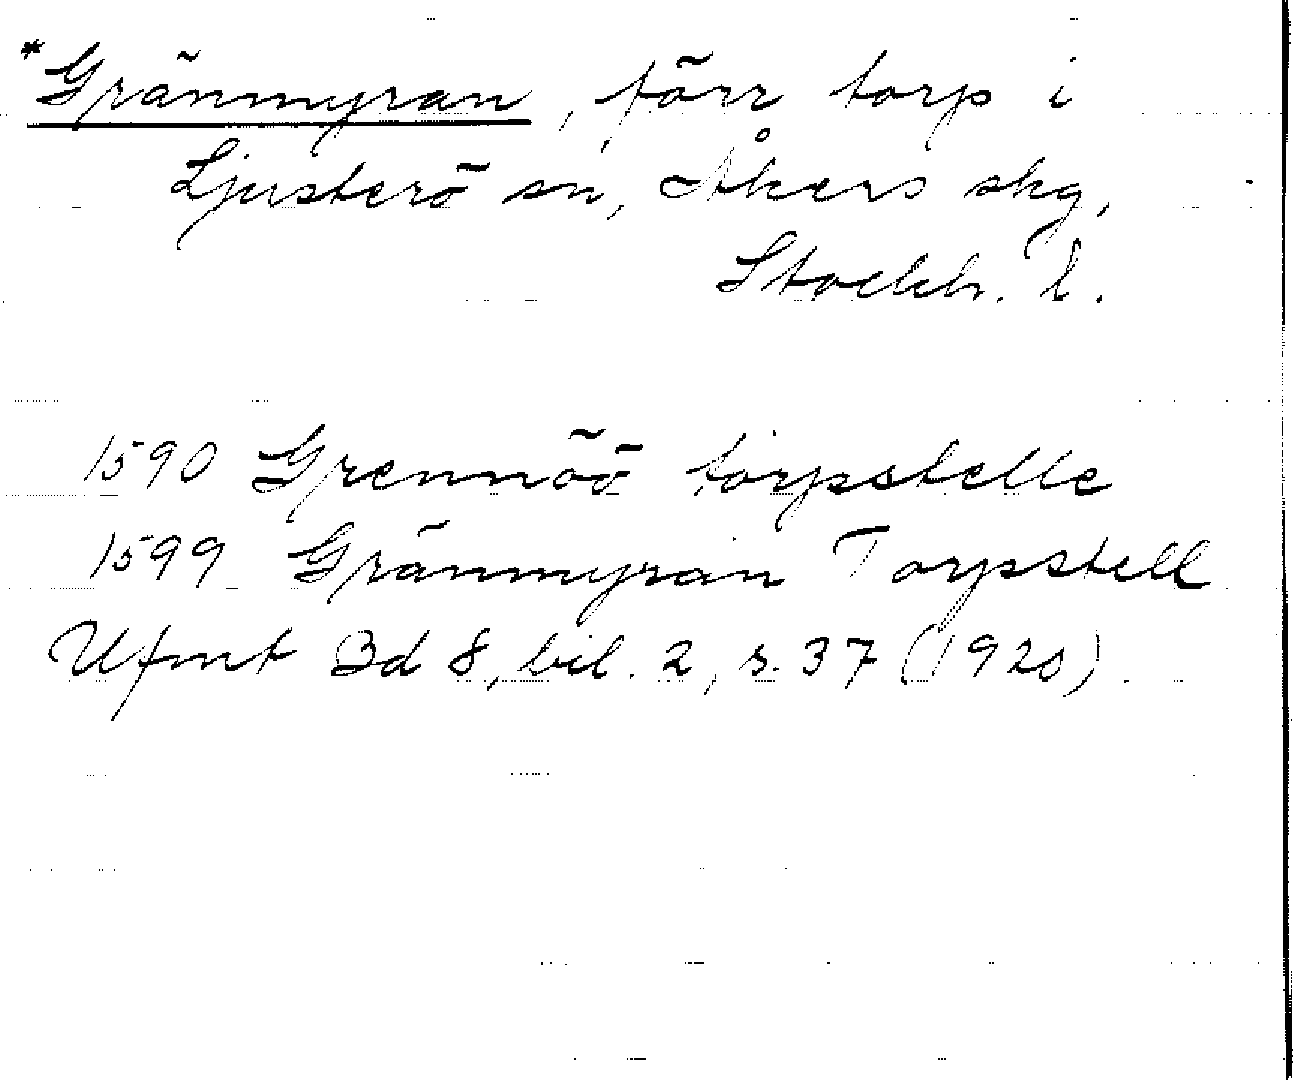 *Gränmyran, förr torp i
Ljusterö sn, Åkers skg,
Stockh. l.
1590 Grennöö torpstelle
1599 Gränmyran Torpstell
Ufmt Bd 8, bil. 2, s. 37 (1920).